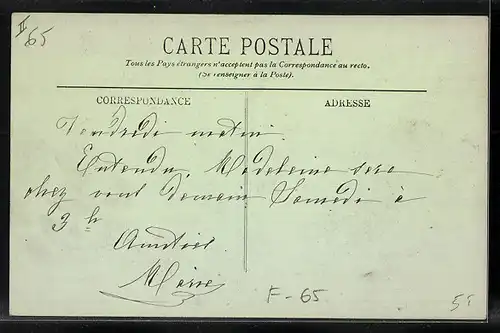 II
65
CARTE POSTALE
Tous les Pays étrangers n'acceptent pas la Correspondance au recto.
(Se renseigner à la Poste).
CORRESPONDANCE
ADRESSE
Vendredi matin
Entendu, Madeleine sera
chez vous demain Samedi à
3h
Amitiés
Marie
F-65